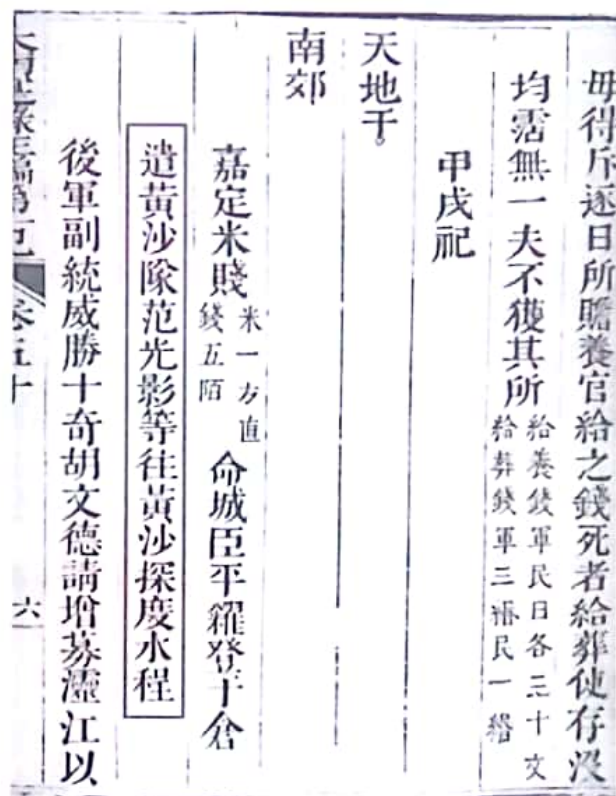 毋得斥逐日所贍養官給之錢死者給葬使存沒
均霑無一夫不獲其所給養錢軍民日各三十文
給葬錢軍三緡民一緡
甲戌祀
天地于
南郊
嘉定米賤米一方直
錢五陌
命城臣平糴登于倉
遣黃沙隊范光影等往黃沙探度水程
後軍副統威勝十奇胡文德請增募瀝江以
大南寔錄正編第一紀
卷五十
六